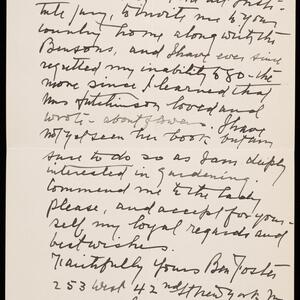 tute jury, to invite me to your
country home along with the
Bensons, and I have ever since
regretted my inability to go - the
more since I learned that
Mrs Hutchinson loved and
wrote - about flowers. I have
not yet seen her book but am
sure to do so as I am deeply
interested in gardening.
Commend me to the lady
please, and accept for your-
self my loyal regards and
best wishes.
Faithfully Yours Ben Foster
253 West 42nd St New York